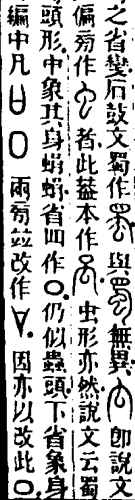 之省變石鼓文蜀作與無異
偏旁作者此蓋本作虫形亦然說文云蜀
頭形中象其身蜎蜎省四作〇仍似蟲頭下省象身
編中凡〇兩旁並改作因亦以改此〇